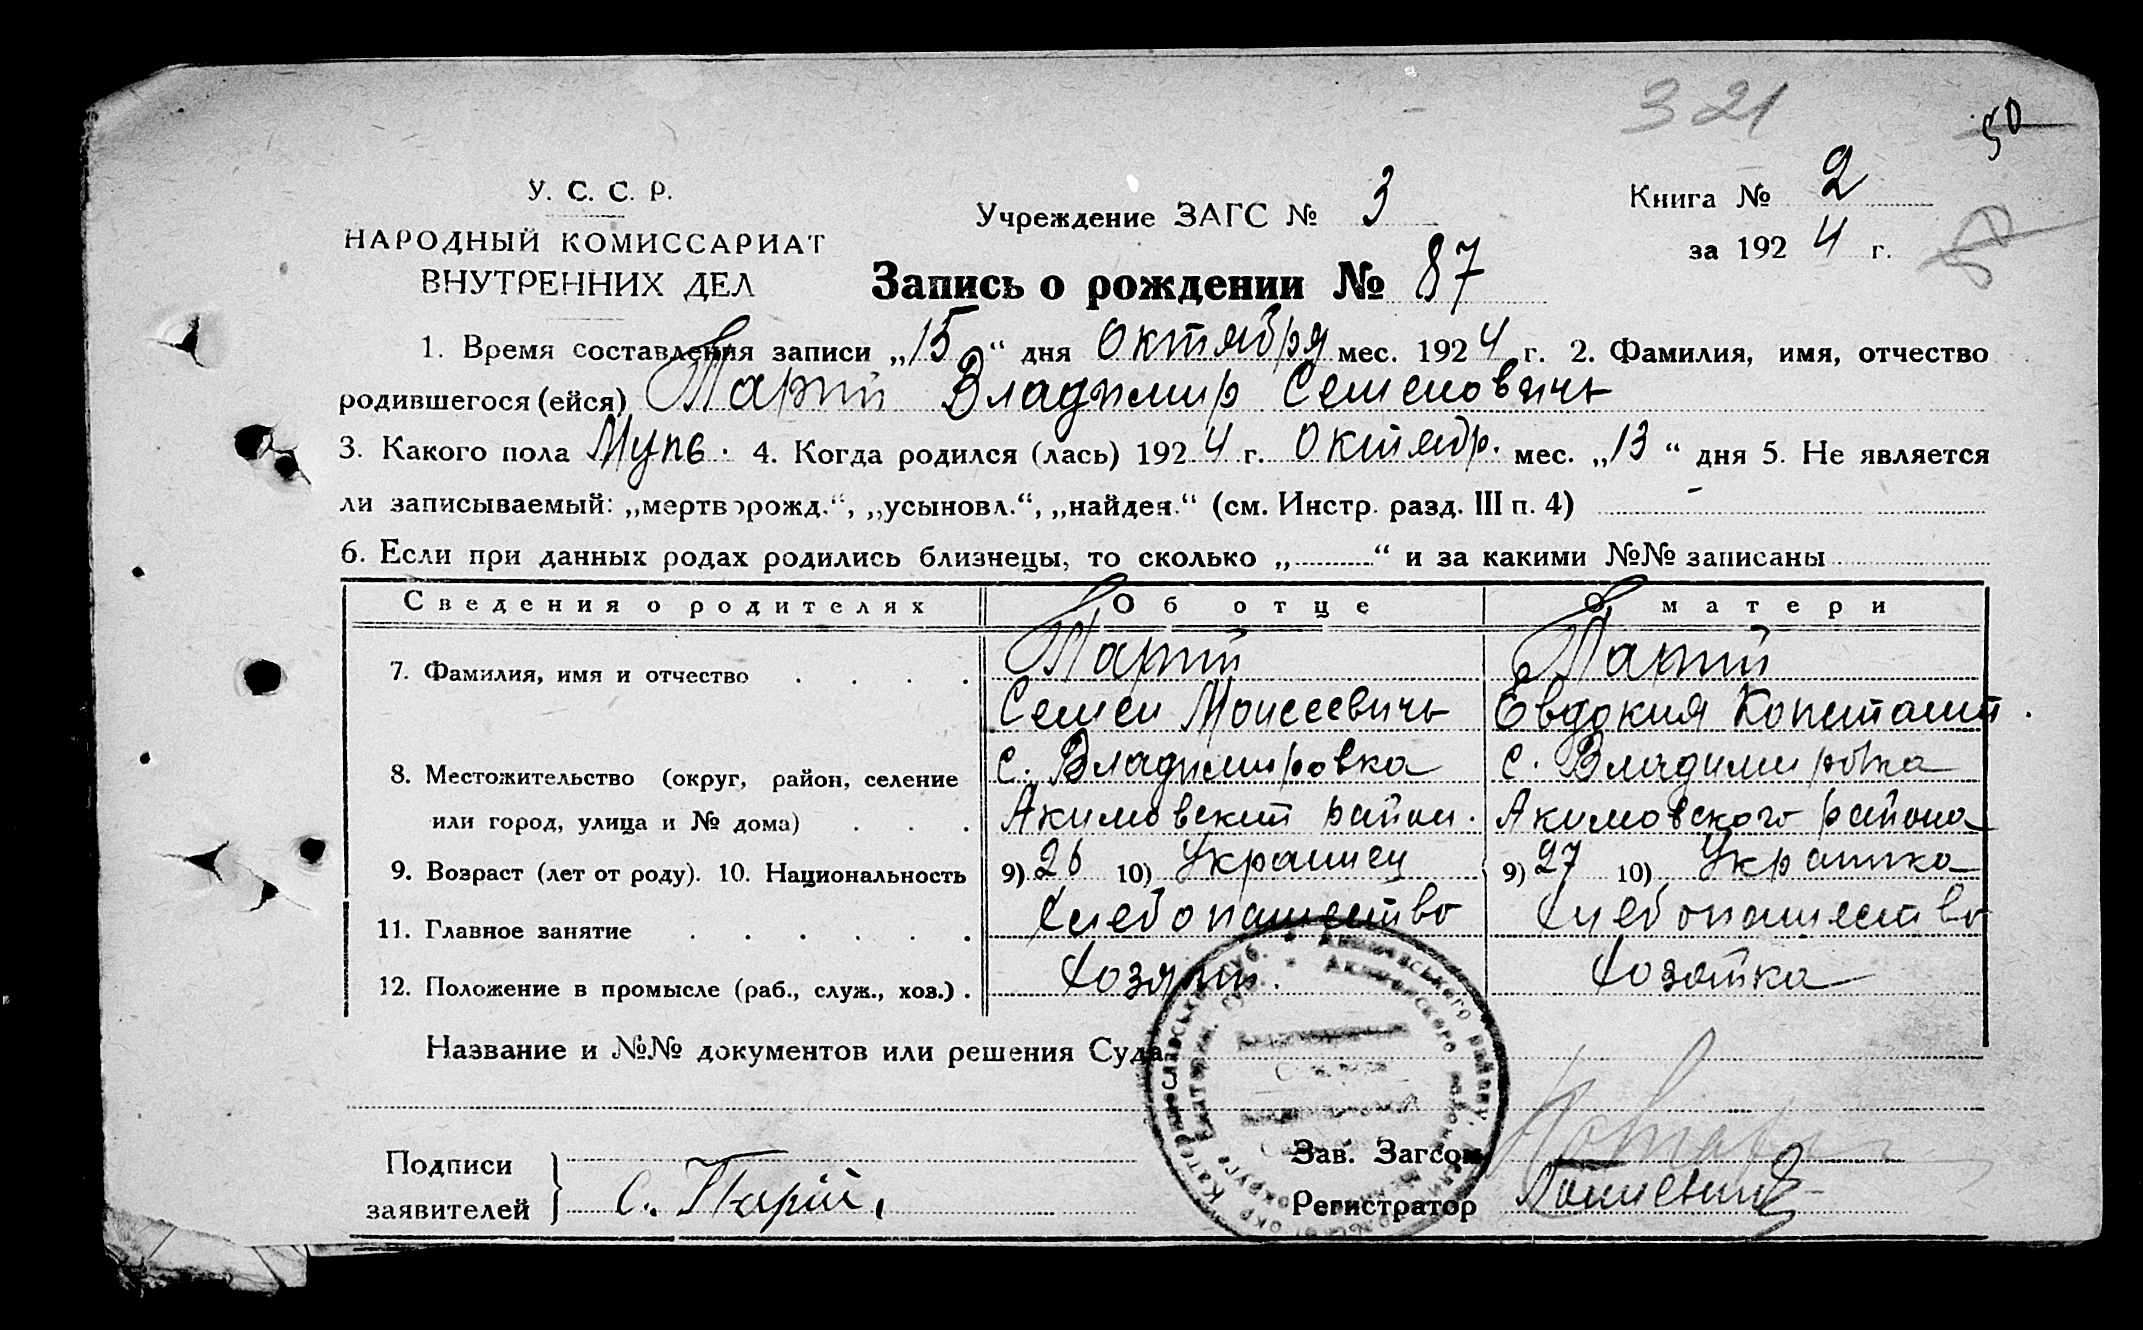 321
50
У. С. С. Р.
НАРОДНЫЙ КОМИССАРИАТ
ВНУТРЕННИХ ДЕЛ
Учреждение ЗАГС № 3
Книга № 2
за 1924 г.
50
Запись о рождении № 87
1. Время составления записи „15“ дня Октября мес. 1924 г. 2. Фамилия, имя, отчество
родившегося (ейся) Парий Владимир Семеновичь
3. Какого пола Муж. 4. Когда родился (лась) 1924 г. Октябр. мес. „13“ дня 5. Не является
ли записываемый: „мертворожд.“, „усыновл.“, „найден.“ (см. Инстр. разд. III п. 4) -
6. Если при данных родах родились близнецы, то сколько „ “ и за какими №№ записаны
Сведения о родителях Об отце О матери
7. Фамилия, имя и отчество Парий Парий
Семен Моисеевичь Евдокия Констант.
8. Местожительство (округ, район, селение с. Владимировка с. Владимировка
или город, улица и № дома) Акимовский район. Акимовского района
9. Возраст (лет от роду). 10. Национальность 9) 26 10) Украинец 9) 27 10) Украинка
11. Главное занятие Хлебопашество Хлебопашество
12. Положение в промысле (раб., служ., хоз.) Хозяин. Хозяйка
Название и №№ документов или решения Суда
Подписи
заявителей С. Парій,
Зав. Загсом
Регистратор